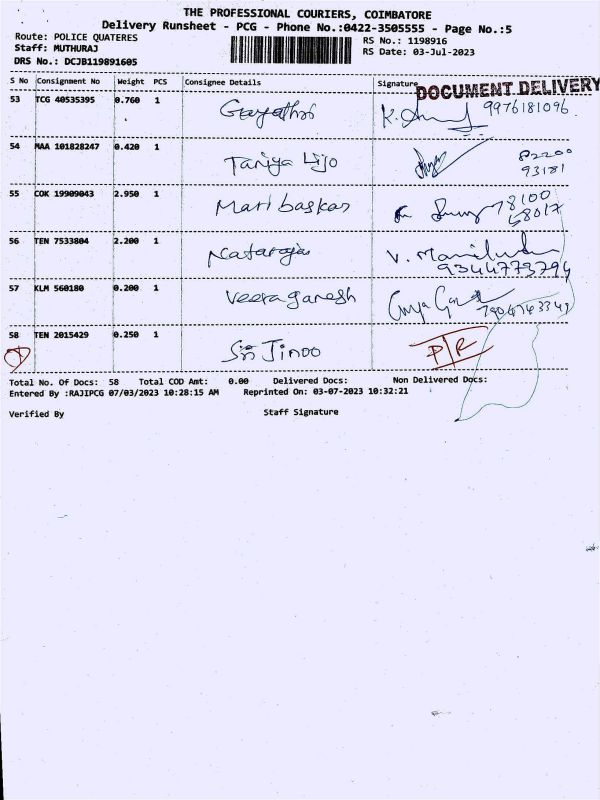 THE PROFESSIONAL COURIERS, COIMBATORE
Delivery Runsheet - PCG - Phone No.:0422-3505555 - Page No.:5
Route: POLICE QUATERES RS No.: 1198916
Staff: MUTHURAJ RS Date: 03-Jul-2023
DRS No.: DCJB119891605
S No Consignment No Weight PCS Consignee Details Signature
DOCUMENT DELIVERY
53 TCG 40535395 0.760 1 Gayathri 9976181096
54 MAA 101828247 0.420 1 Taniya Lijo 82200
93181
55 COK 19909043 2.950 1 Mari baskar 78100
68017
56 TEN 7533804 2.200 1 Nataraja V.
9344773794
57 KLM 560180 0.200 1 Veera ganesh
58 TEN 2015429 0.250 1 Sri Jinoo P/R
Total No. Of Docs: 58 Total COD Amt: 0.00 Delivered Docs: Non Delivered Docs:
Entered By :RAJIPCG 07/03/2023 10:28:15 AM Reprinted On: 03-07-2023 10:32:21
Verified By Staff Signature